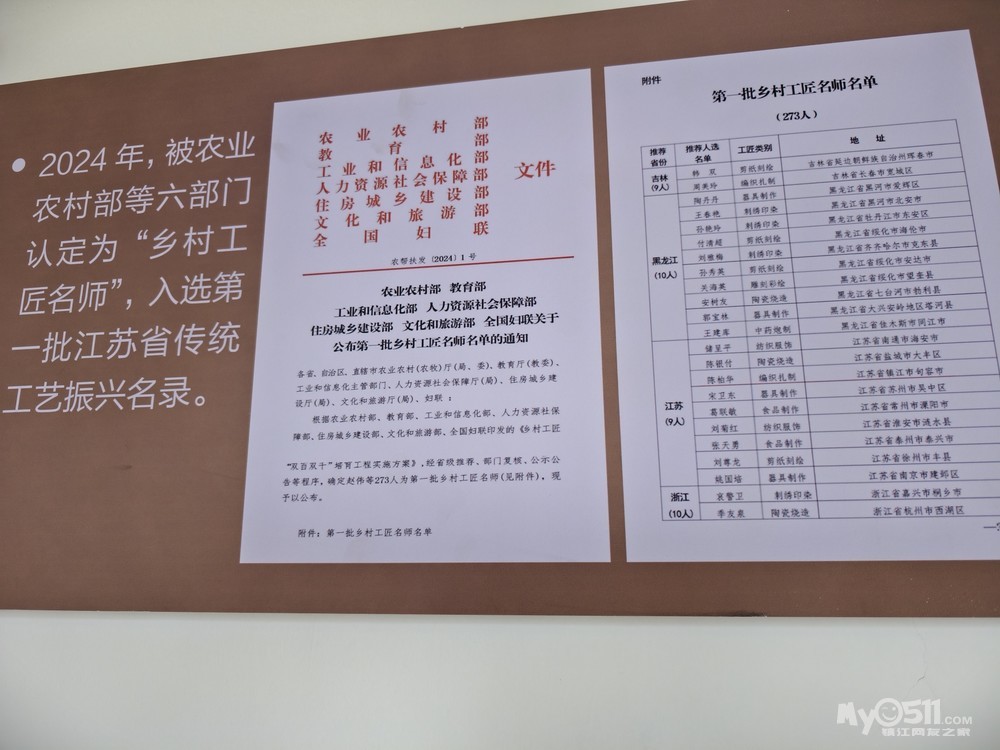 ● 2024 年，被农业
农村部等六部门
认定为“乡村工
匠名师”，入选第
一批江苏省传统
工艺振兴名录。
农业农村部
教育部
工业和信息化部
人力资源社会保障部
住房城乡建设部
文化和旅游部
全国妇联
文件
农帮扶发〔2024〕1 号
农业农村部 教育部
工业和信息化部 人力资源社会保障部
住房城乡建设部 文化和旅游部 全国妇联关于
公布第一批乡村工匠名师名单的通知
各省、自治区、直辖市农业农村(农牧)厅(局、委)、教育厅(教委)、
工业和信息化主管部门、人力资源社会保障厅(局)、住房城乡建
设厅(局)、文化和旅游厅(局)、妇联：
根据农业农村部、教育部、工业和信息化部、人力资源社保
障部、住房城乡建设部、文化和旅游部、全国妇联印发的《乡村工匠
“双百双千”培育工程实施方案》，经省级推荐、部门复核、公示公
告等程序，确定赵伟等273人为第一批乡村工匠名师(见附件)，现
予以公布。
附件：第一批乡村工匠名师名单
附件
第一批乡村工匠名师名单
（273人）
推荐省份 推荐人选名单 工匠类别 地 址
吉林(9人) 韩双 剪纸刻绘 吉林省延边朝鲜族自治州珲春市
周美玲 编织扎制 吉林省长春市宽城区
黑龙江(10人) 陶丹丹 器具制作 黑龙江省黑河市爱辉区
王春艳 刺绣印染 黑龙江省黑河市北安市
孙艳玲 刺绣印染 黑龙江省牡丹江市东安区
付清超 剪纸刻绘 黑龙江省绥化市海伦市
刘雅梅 刺绣印染 黑龙江省齐齐哈尔市克东县
孙秀英 剪纸刻绘 黑龙江省绥化市安达市
关海英 雕刻彩绘 黑龙江省绥化市望奎县
安树友 陶瓷烧造 黑龙江省七台河市勃利县
郭宝林 器具制作 黑龙江省大兴安岭地区塔河县
王建库 中药炮制 黑龙江省佳木斯市同江市
江苏(9人) 储呈平 纺织服饰 江苏省南通市海安市
陈银付 陶瓷烧造 江苏省盐城市大丰区
陈柏华 编织扎制 江苏省镇江市句容市
宋卫东 器具制作 江苏省苏州市吴中区
葛联敏 食品制作 江苏省常州市溧阳市
刘菊红 纺织服饰 江苏省淮安市涟水县
张天勇 食品制作 江苏省泰州市泰兴市
刘尊龙 剪纸刻绘 江苏省徐州市丰县
姚国培 器具制作 江苏省南京市建邺区
浙江(10人) 哀警卫 刺绣印染 浙江省嘉兴市桐乡市
李友泉 陶瓷烧造 浙江省杭州市西湖区
My0511.COM
镇江网友之家